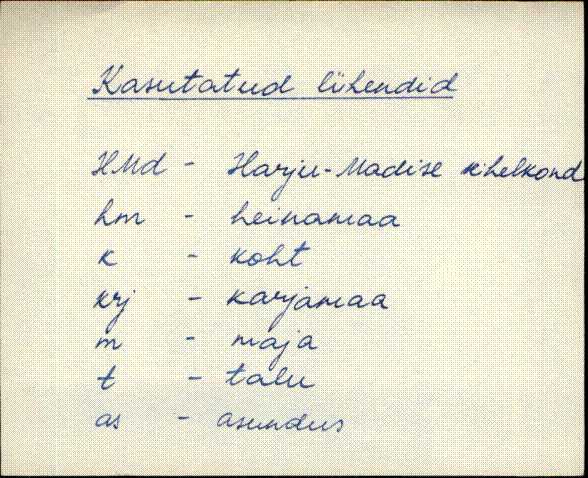 Kasutatud lühendid
HMd - Harju-Madise kihelkond
hm - heinamaa
k - koht
krj - karjamaa
m - maja
t - talu
as - asundus